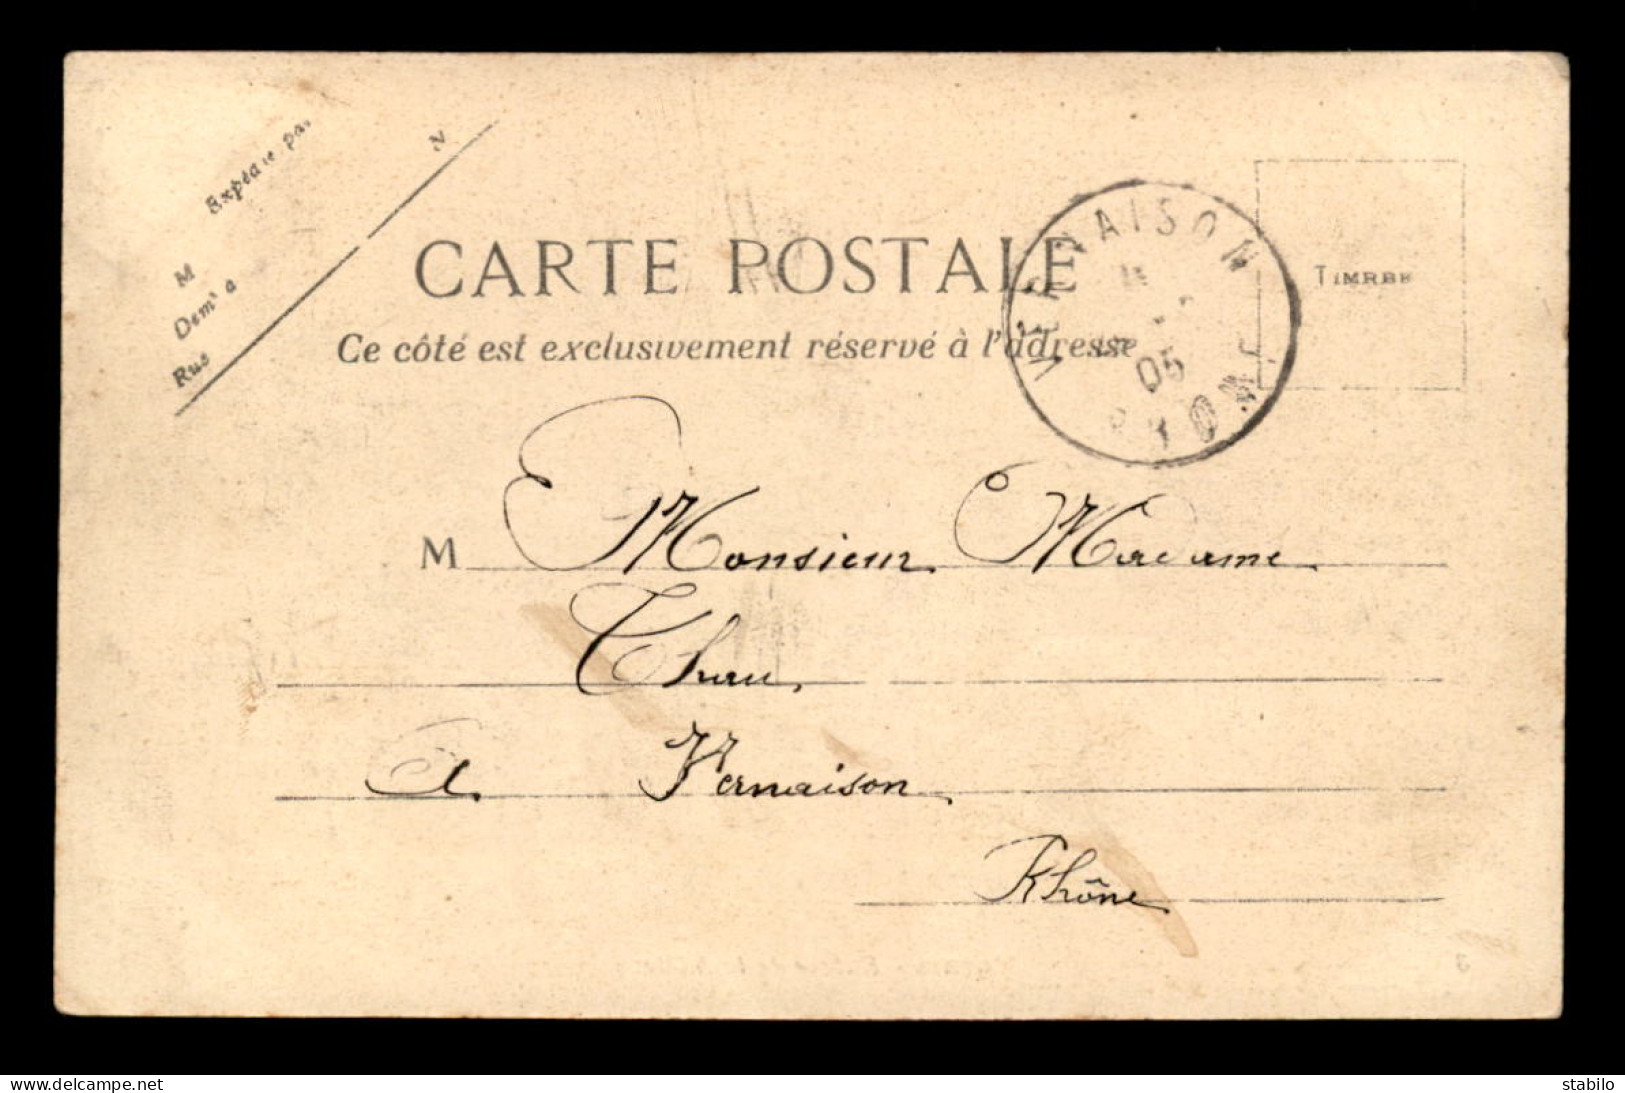 Expédié par
N
M
Dem^t à
Rue
CARTE POSTALE
Ce côté est exclusivement réservé à l'adresse
TIMRBE
VERNAISON
05
RHONE
M Monsieur Madame
Thuau
A Vernaison
Rhône
www.delcampe.net
stabilo